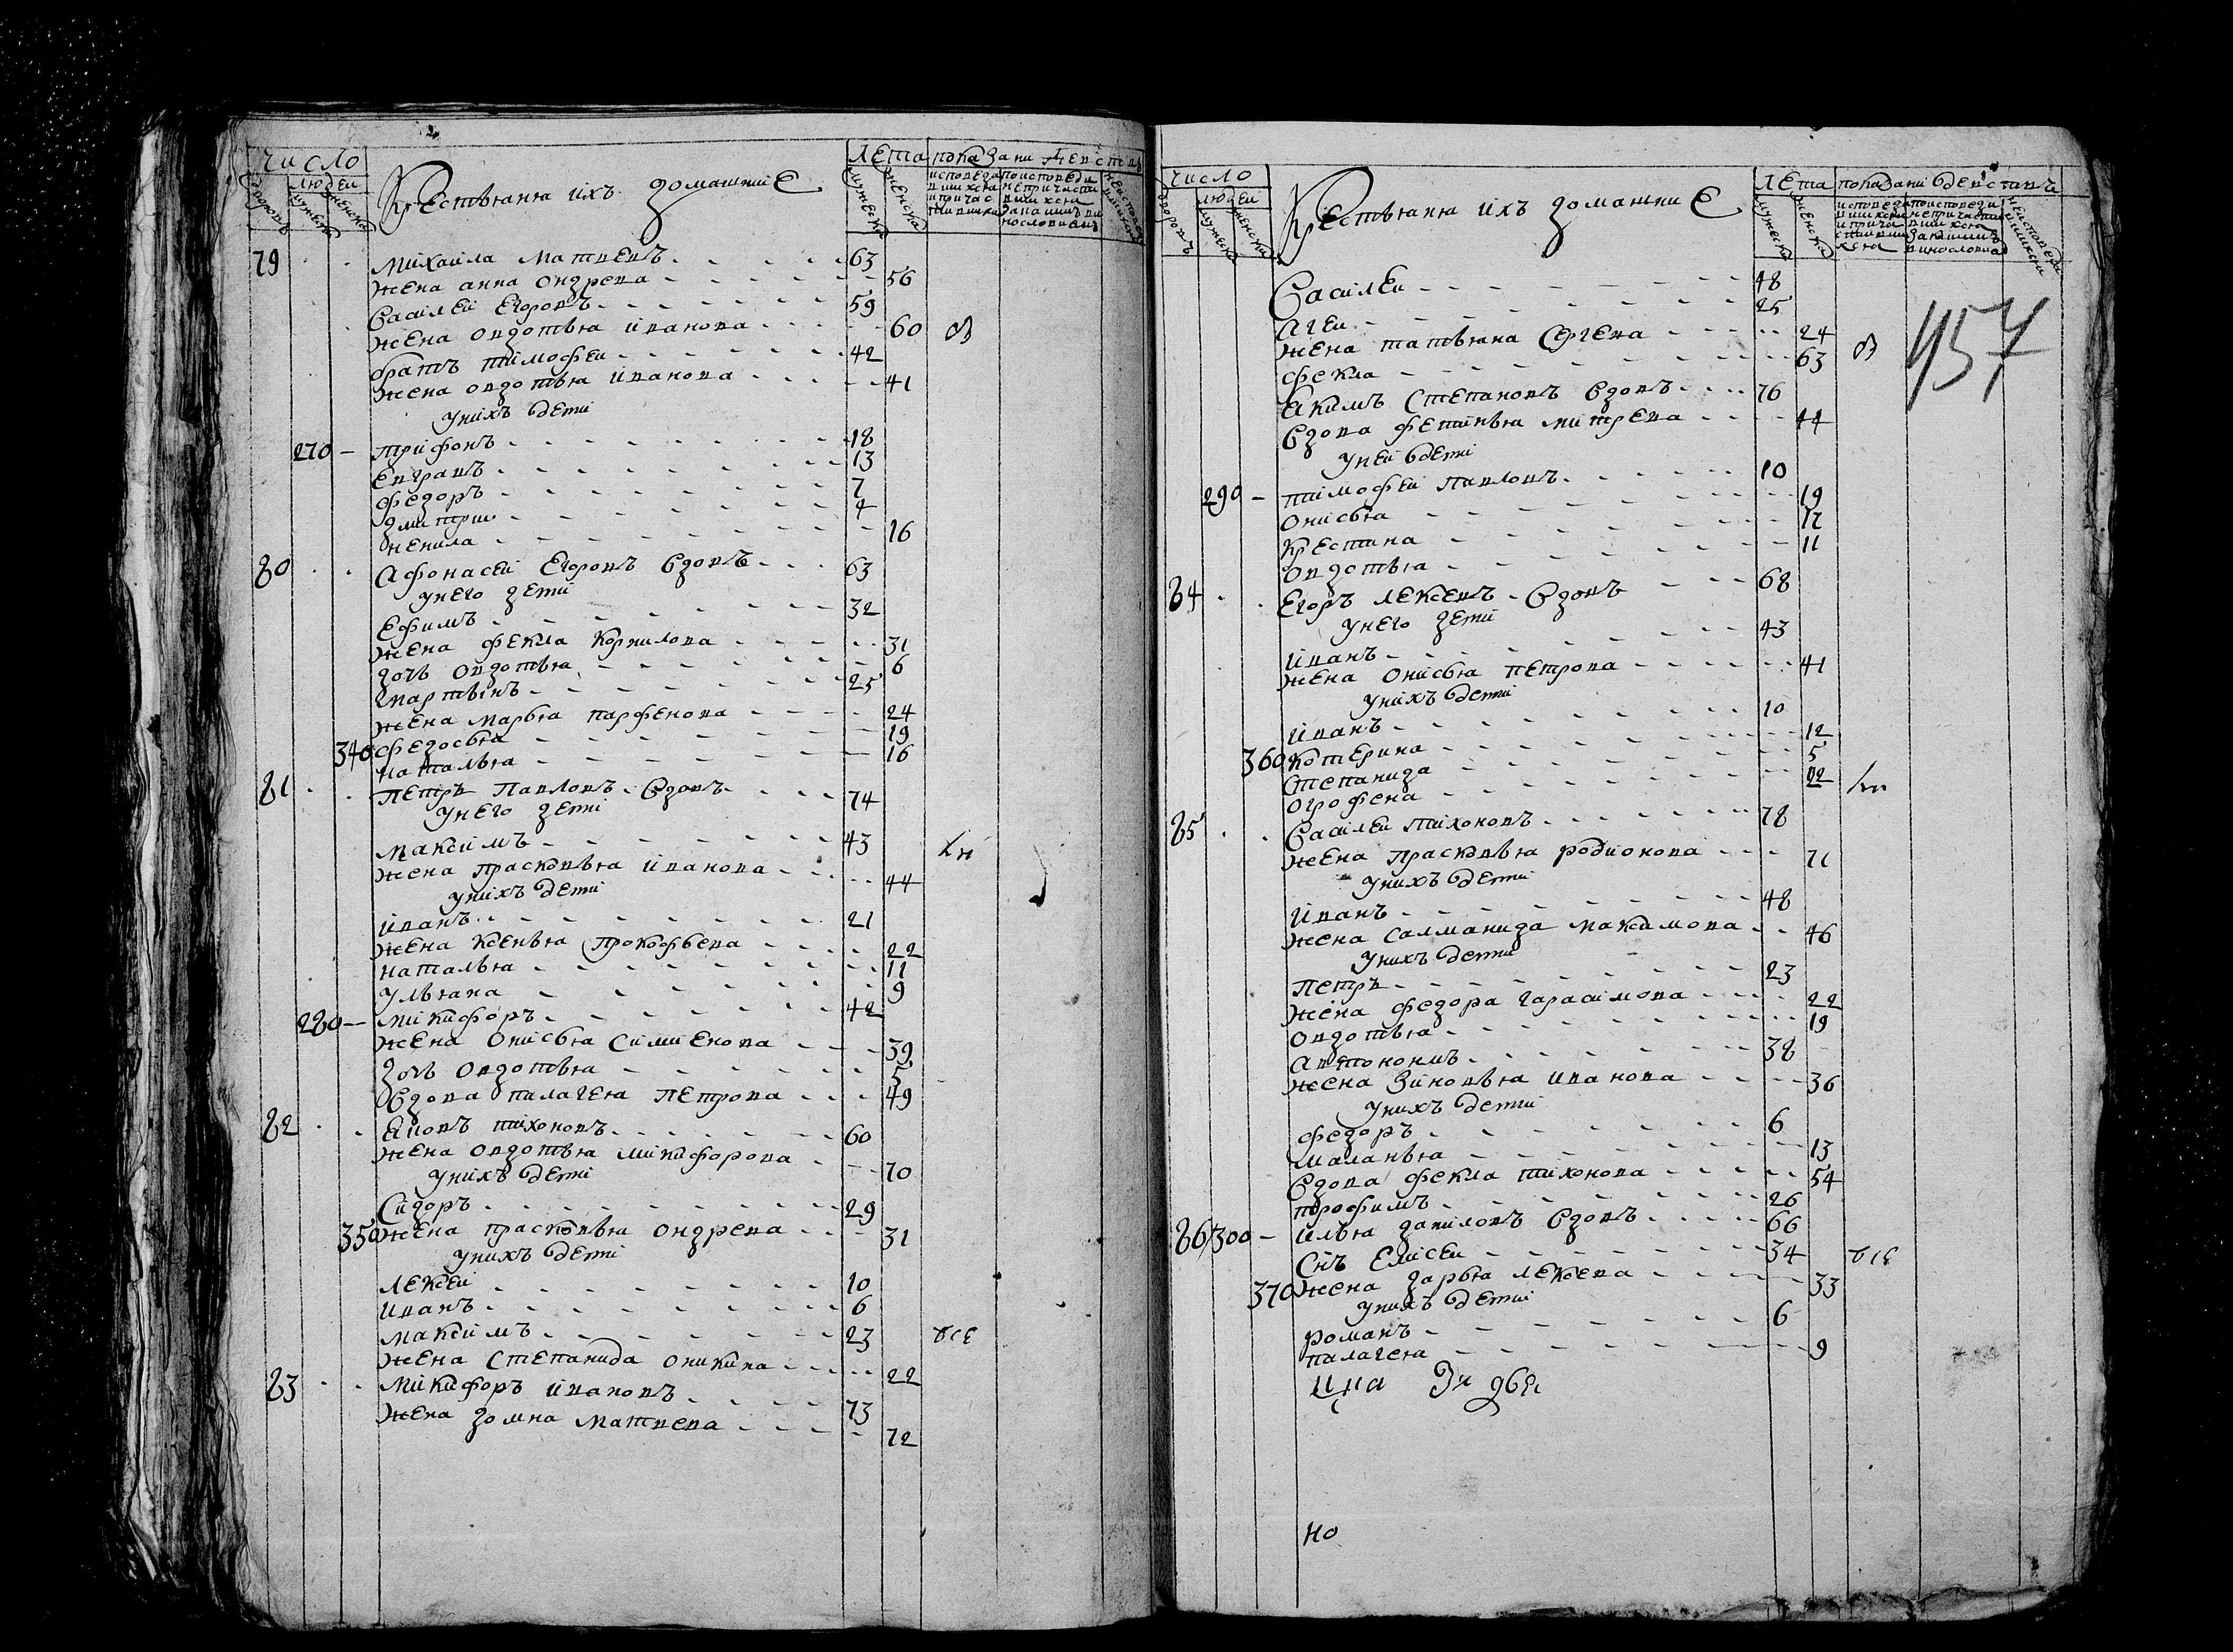 Число
людей
дворовъ
мужеска
женска
Крестьяня ихъ домашние
Лета
мужеска
женска
показани действъ
79 Михаила Матвевъ 63
жена анна ондрева 56
Василей Егоровъ 59
жена овдотья иванова 60
братъ тимофеи 42
жена овдотья иванова 41
уних дети
270 трифонъ 18
Евгравъ 13
федоръ 7
дмитри 4
ненила 16
80 Афонасей Егоровъ вдовъ 63
унего дети
Ефимъ 32
жена фекла корнилова 31
дочь овдотья 6
мартынъ 25
жена марья парфенова 24
340 федосья 19
наталья 16
81 Петръ Павловъ вдовъ 74
унего дети
Максимъ 43
жена прасковья иванова 44
унихъ дети
иванъ 21
жена ксенья прокофьева 22
наталья 11
ульяна 9
280 микифоръ 42
жена онисья симиенова 39
дочь овдотья 5
вдова палагея петрова 49
82 тихоновъ 60
жена овдотья микифорова 70
унихъ дети
Сидоръ 29
350 жена прасковья ондрева 31
унихъ дети
лексеи 10
иванъ 6
максимъ 23
жена степанида оникива 22
83 Микифоръ ивановъ 73
жена домна матвева 72
Число
людей
дворовъ
мужеска
женска
Крестьяня ихъ домашние
Лета
мужеска
женска
показани действа
457
Василеи 48
Агеи 25
жена татьяна Сергева 24
фекла 63
Екимъ Степановъ вдовъ 76
вдова фетинья митрева 44
уней дети
290 тимофеи Павловъ 10
онисья 19
крестина 17
овдотья 11
84 Егоръ лексевъ вдовъ 68
унего дети
иванъ 43
жена онисья петрова 41
унихъ дети
иванъ 10
360 котерина 12
степанида 5
огрофена 22
85 Василеи тихоновъ 78
жена прасковья родионова 71
унихъ дети
иванъ 48
жена салманида максимова 46
унихъ дети
петръ 23
жена федора гарасимова 22
овдотья 19
автономъ 38
жена зиновья иванова 36
унихъ дети
федоръ 6
маланья 13
вдова фекла тихонова 54
трофимъ 26
86 300 илья даниловъ вдовъ 66
Снъ Елисеи 34
370 жена дарья лексева 33
унихъ дети
романъ 6
палагея 9
но